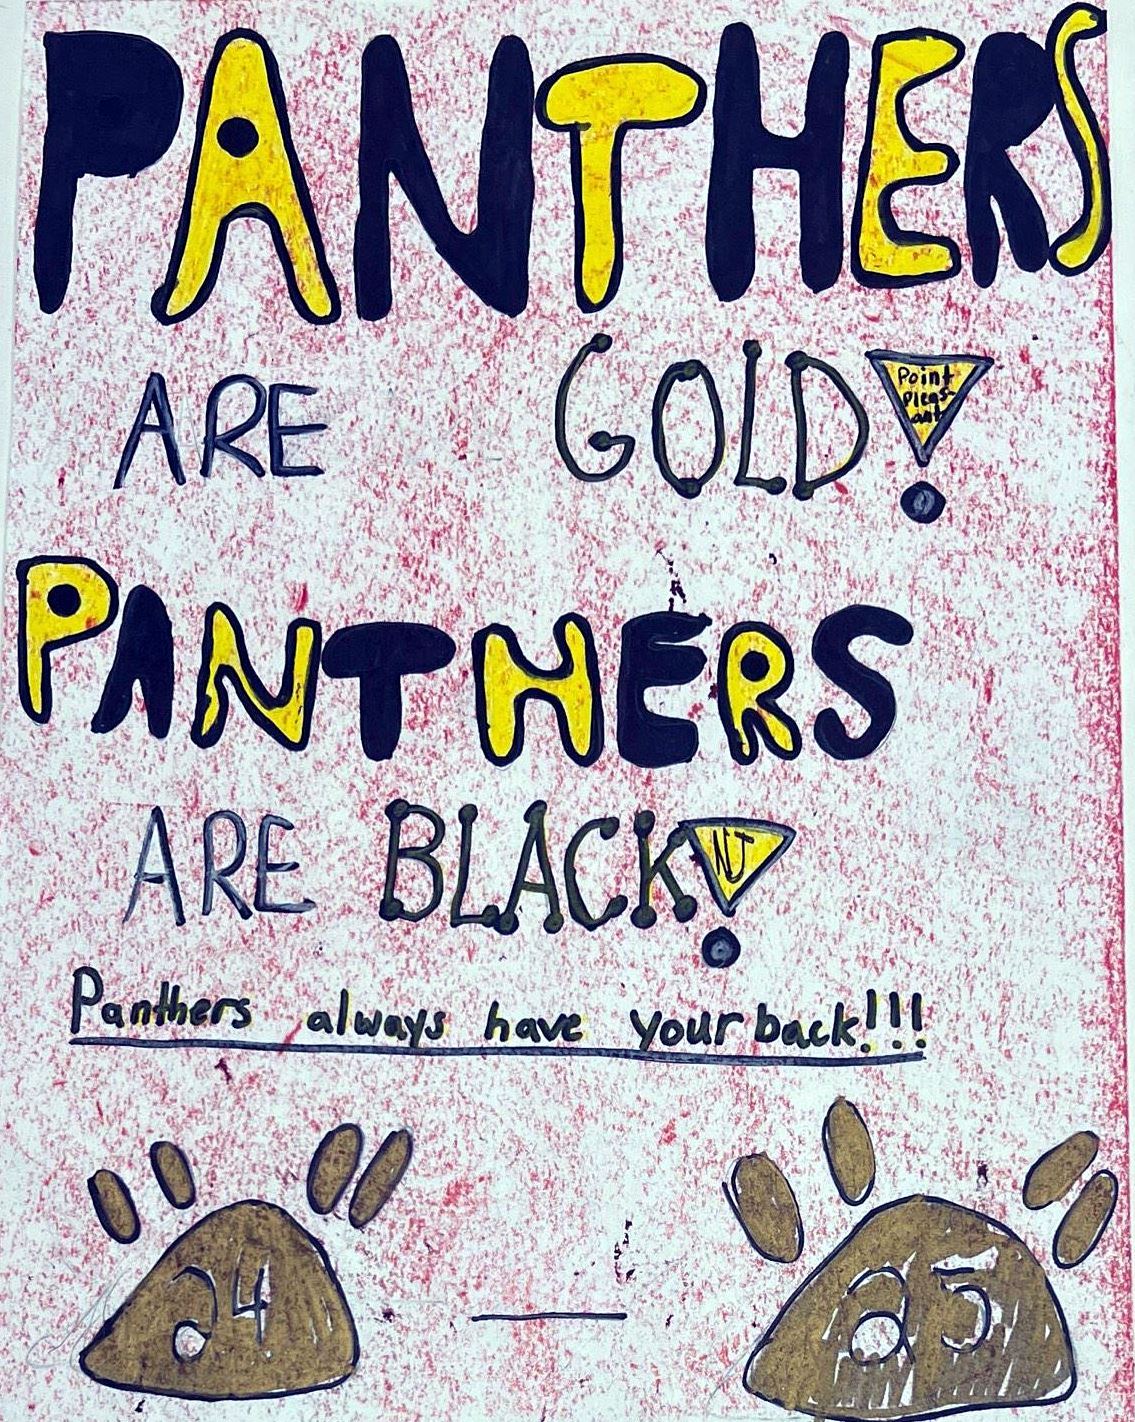 PANTHERS
ARE GOLD!
Point
Pleas-
ant
PANTHERS
ARE BLACK!
NJ
Panthers always have your back!!!
24 — 25